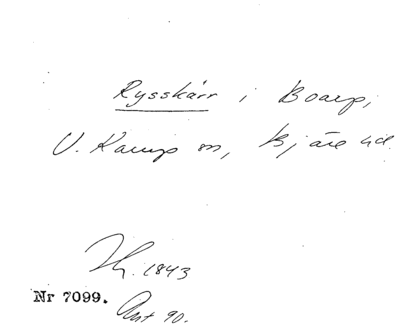 Rysskärr i Boarp,
V. Karup sn, Bjäre hd.
Th. 1843
Nr 7099.
Ant 90.